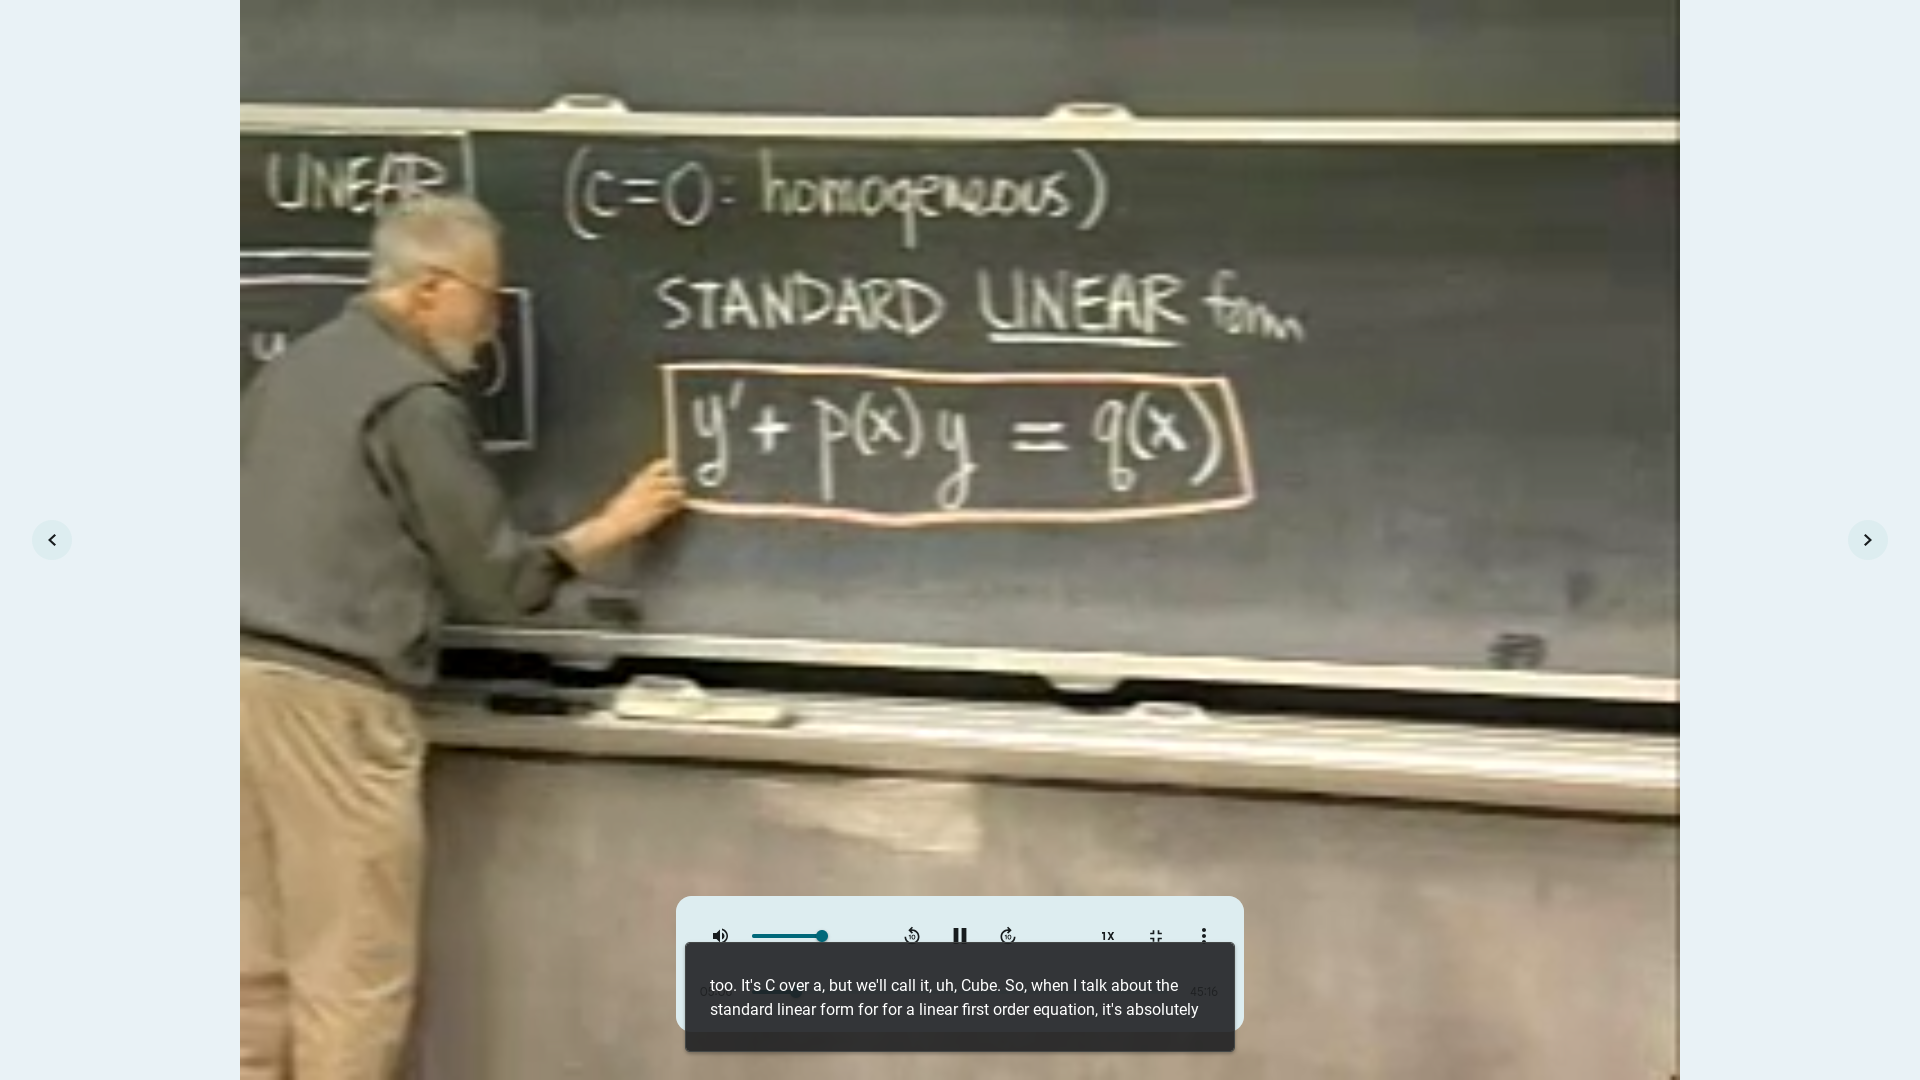 LINEAR (c=0: homogeneous)
STANDARD LINEAR form
y
y' + p(x)y = q(x)
1X
too. It's C over a, but we'll call it, uh, Cube. So, when I talk about the
45:16
standard linear form for for a linear first order equation, it's absolutely